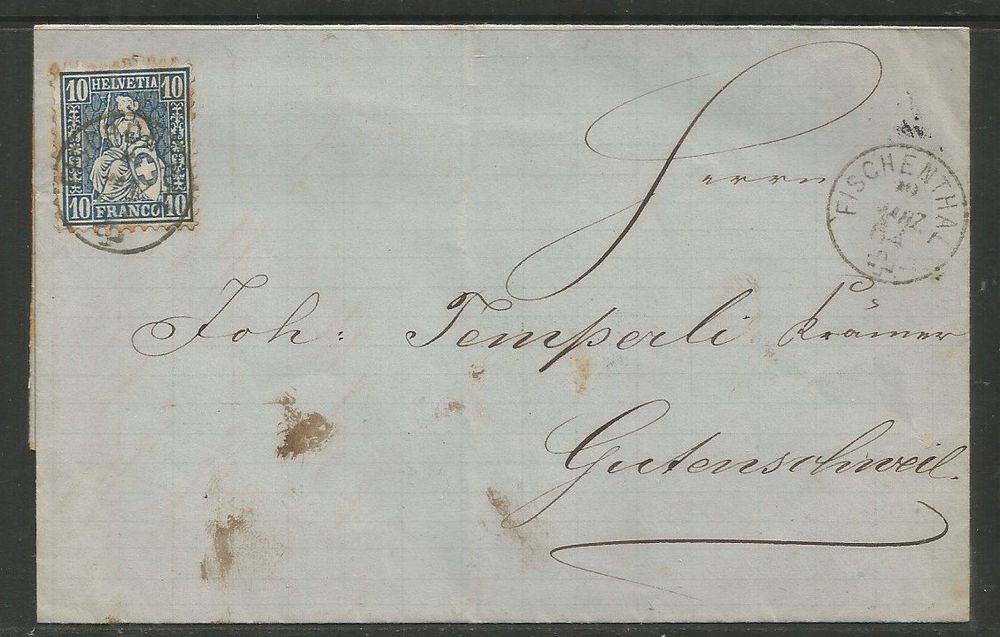 10 HELVETIA 10
10 FRANCO 10
FISCHENTHAL
MÄRZ
Herrn
Joh: Temperli Krämer
Gutenschweil.